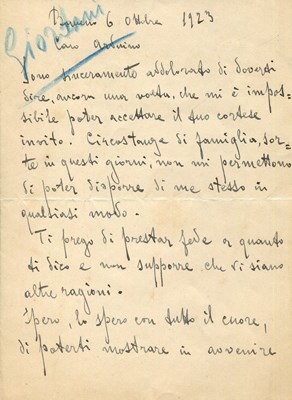 Baveno 6 Ottbre 1923
Giordani
Caro Arduino
Sono sinceramente addolorato di doverti
dire, ancora una volta, che mi è impos=
sibile poter accettare il tuo cortese
invito. Circostanze di famiglia, sor=
te in questi giorni, non mi permettono
di poter disporre di me stesso in
qualsiasi modo.
Ti prego di prestar fede a quanto
ti dico e non supporre che vi siano
altre ragioni.
Spero, lo spero con tutto il cuore,
di poterti mostrare in avvenire